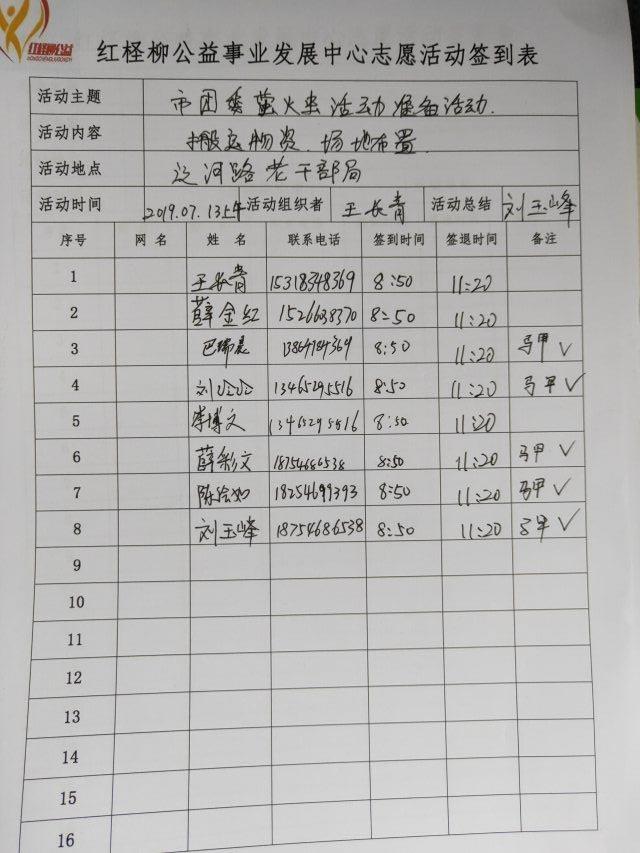 红柽柳公益
红柽柳公益事业发展中心志愿活动签到表
活动主题 市团委萤火虫活动准备活动.
活动内容 搬运物资.场地布置.
活动地点 辽河路老干部局
活动时间 2019.07.13上午 活动组织者 王长青 活动总结 刘玉峰
序号 网名 姓名 联系电话 签到时间 签退时间 备注
1 王长青 15318348369 8:50 11:20
2 薛金红 1526638370 8:50 11:20
3 巴瑞晨 13864784369 8:50 11:20 马甲 ✓
4 刘 13465295516 8:50 11:20 马甲 ✓
5 李博文 13465295516 8:50 11:20
6 薛彩文 18754686538 8:50 11:20 马甲 ✓
7 陈绘如 18254699393 8:50 11:20 马甲 ✓
8 刘玉峰 18754686538 8:50 11:20 马甲 ✓
9
10
11
12
13
14
15
16